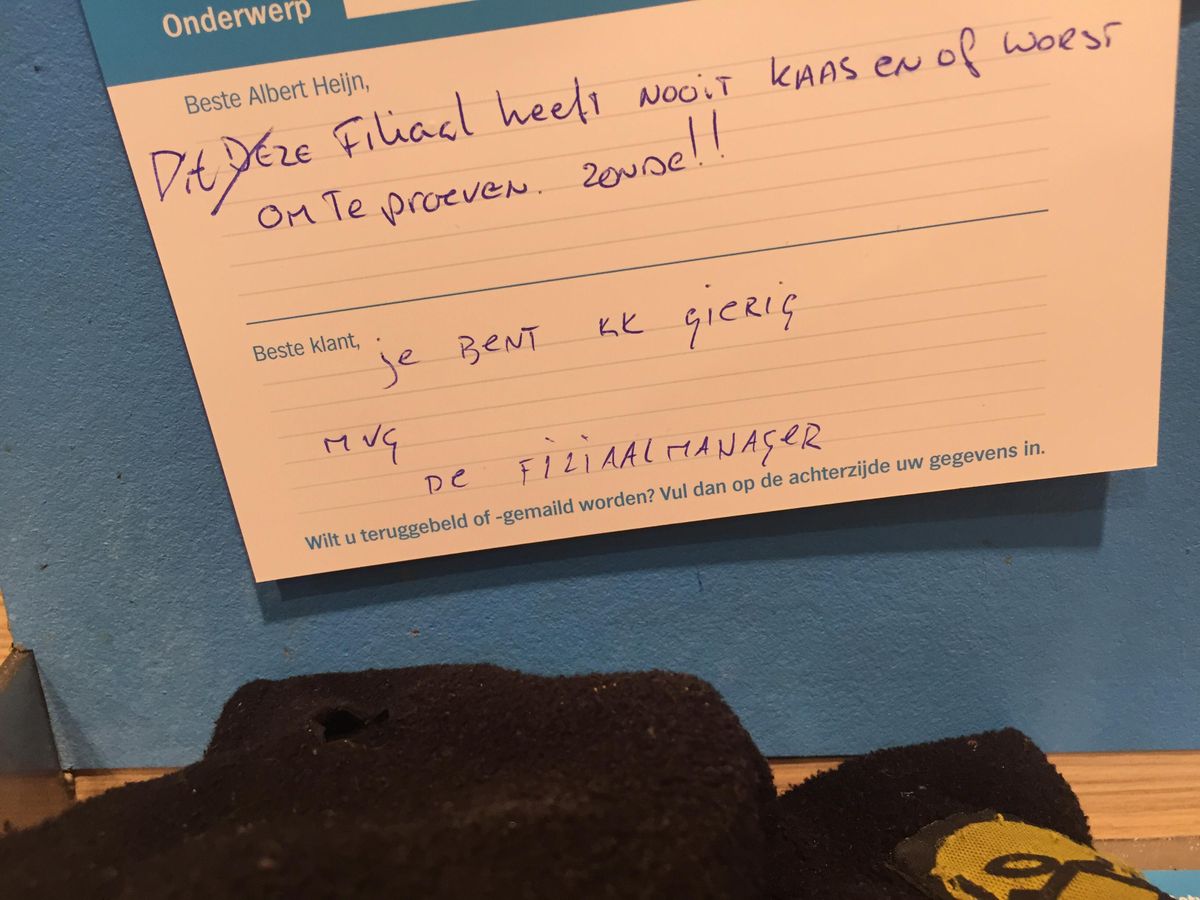 Onderwerp
Beste Albert Heijn,
Dit Deze Filiaal heeft nooit KAAS en of worst
om te proeven. zonde!!
Beste klant, je BENT KK gierig
MVG
De Filiaalmanager
Wilt u teruggebeld of -gemaild worden? Vul dan op de achterzijde uw gegevens in.